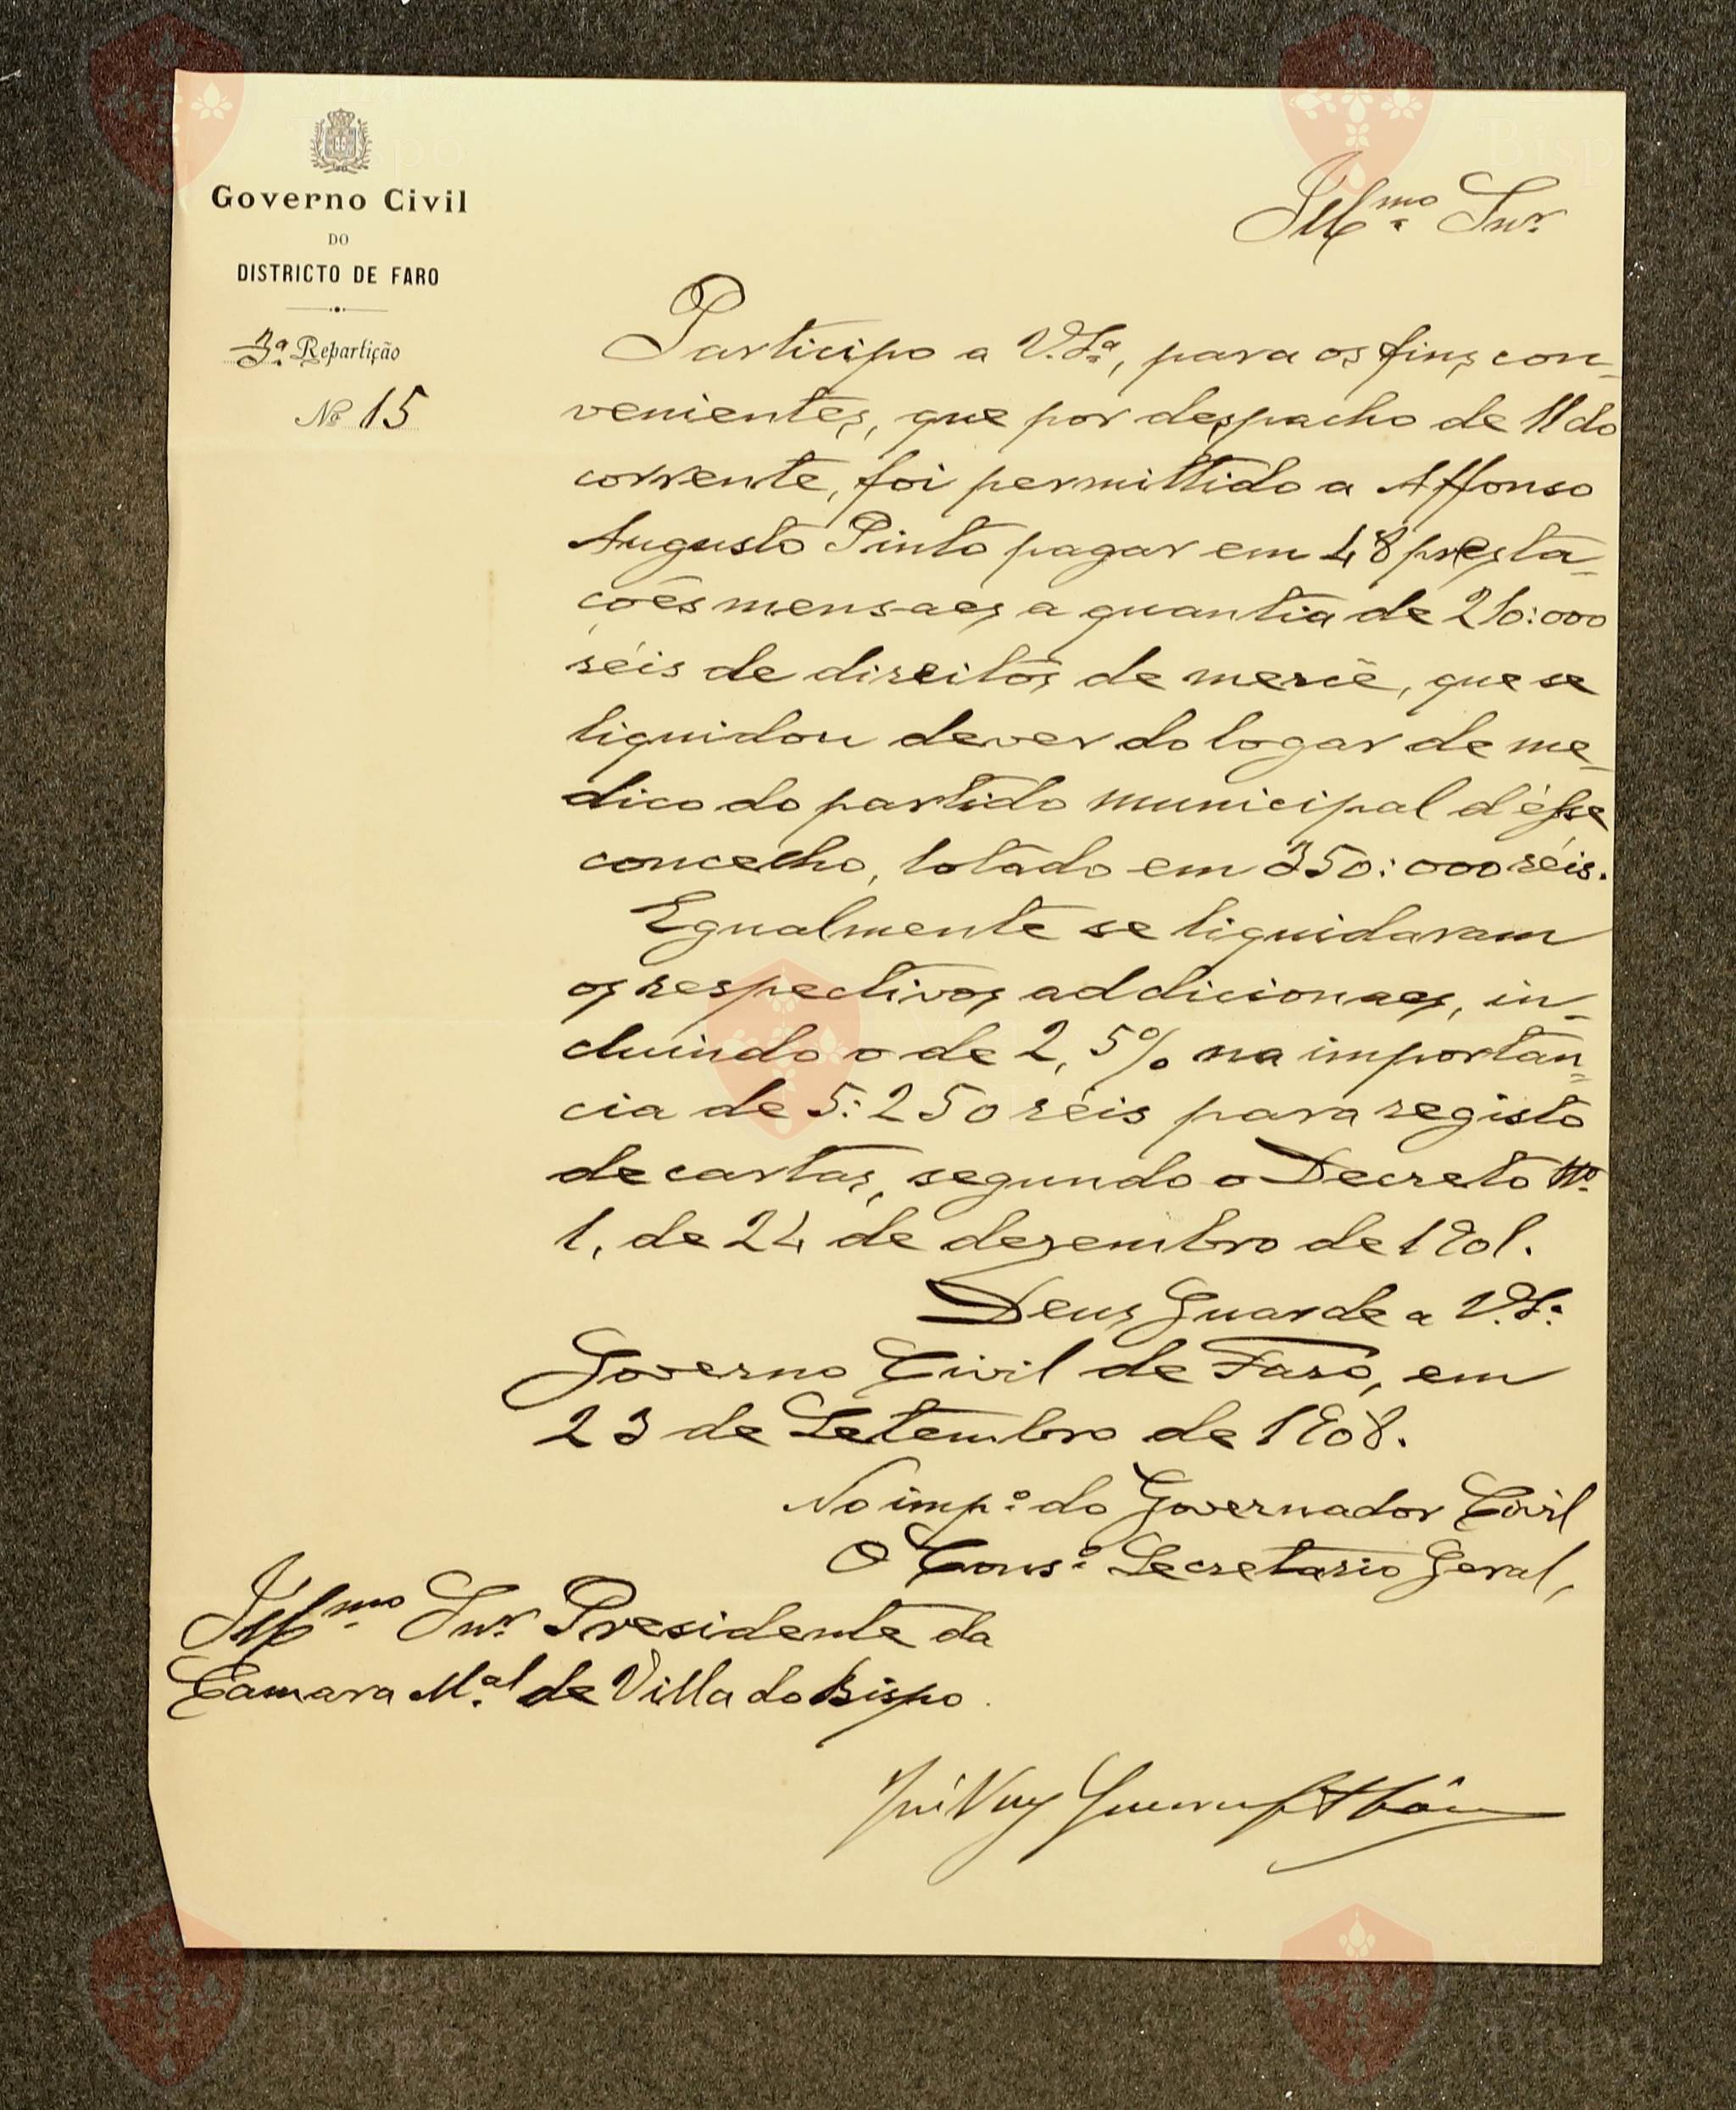 Governo Civil
DO
DISTRICTO DE FARO
3ª Repartição
Nº 15
Illmo Snr.
Participo a V.Sª, para os fins con-
venientes, que por despacho de 11 do
corrente, foi permittido a Affonso
Augusto Pinto pagar em 48 presta-
ções mensaes a quantia de 210:000
réis de direitos de mercê, que se
liquidou dever do logar de me-
dico do partido municipal d'ésse
concelho, lotado em 350:000 réis.
Egualmente se liquidaram
os respectivos addicionaes, in-
cluindo o de 2,5% na importan-
cia de 5:250 réis para registo
de cartas, segundo o Decreto Nº
1, de 24 de dezembro de 1901.
Deus Guarde a V.Sª.
Governo Civil de Faro, em
23 de Setembro de 1908.
No impº do Governador Civil
O Consº Secretario Geral,
Illmo Snr. Presidente da
Camara Mal de Villa do Bispo.
Bispo